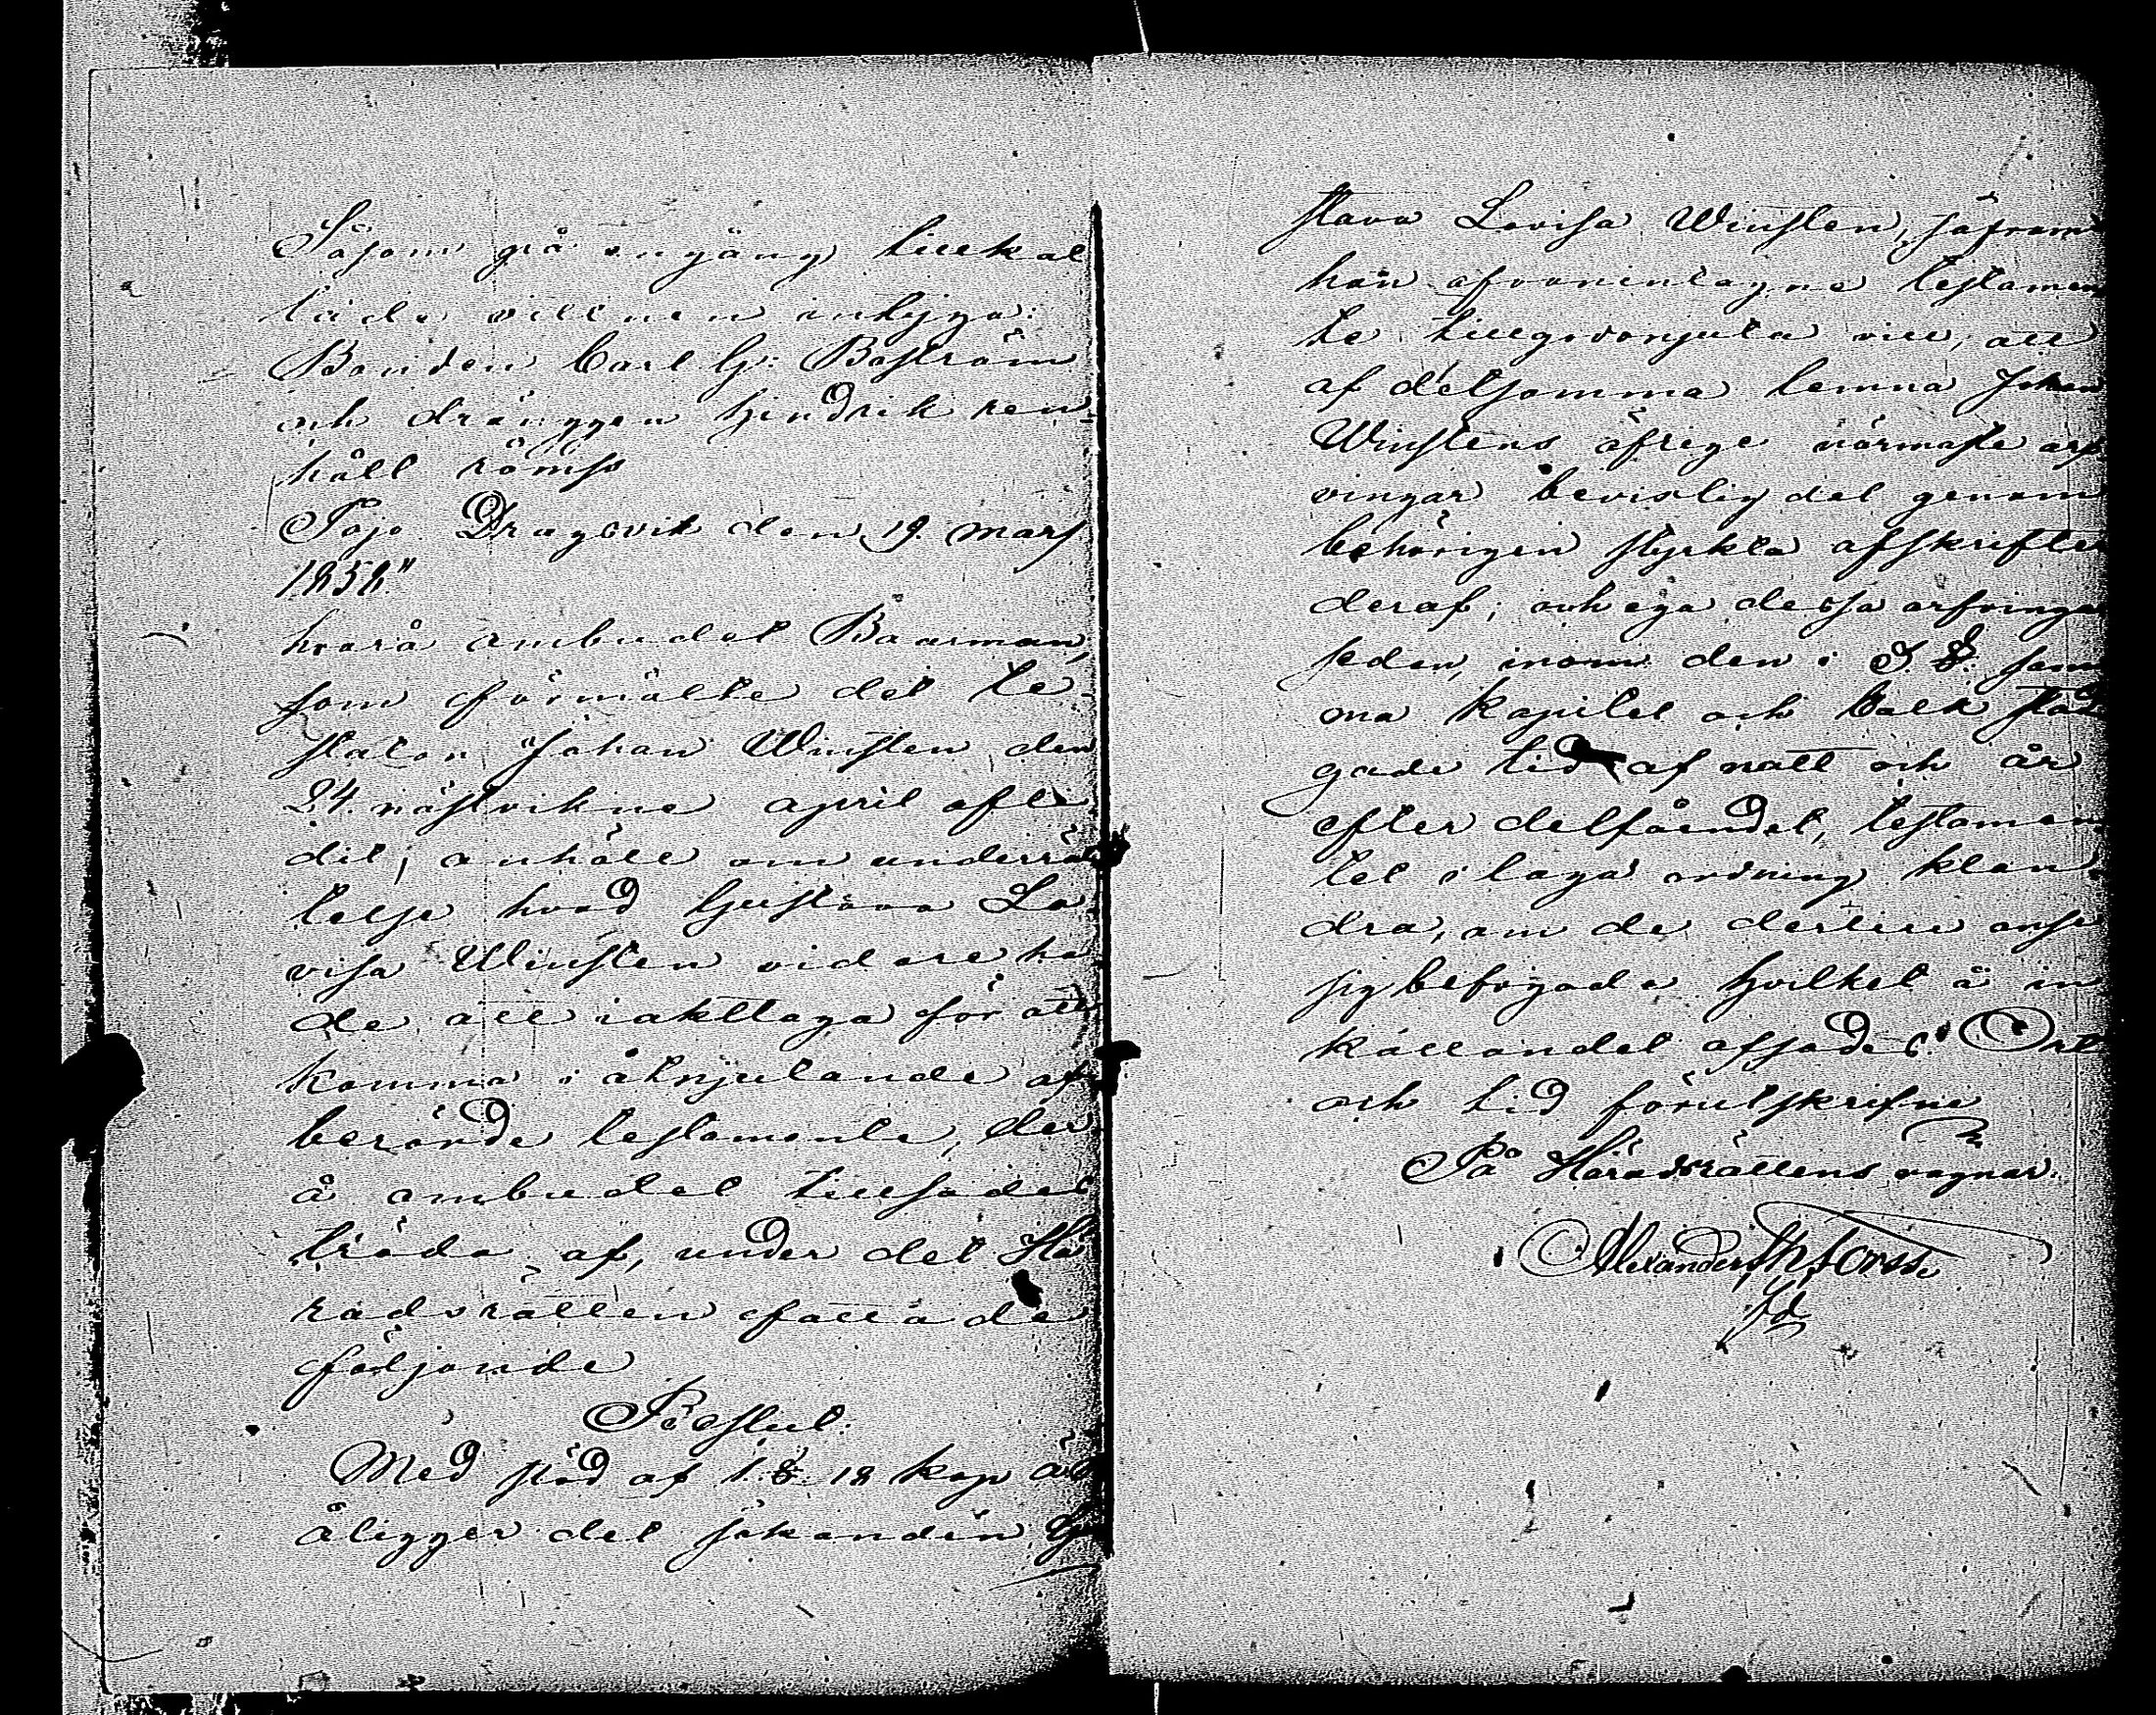 Såsom på engång tillkal
lade vittnen intyga:
Bonden Carl G: Boström
och drängen Hindrik ren
håll römss
Pojo Dragsvik den 19. mars
1858."
hvarå ombudet Boarman,
som förmälte det te
stator Johan Winsten den
24. nästvikne april afli
dit, anhöll om underrät
telse hvad Gustava Lo
visa Winsten vidare ha
de att iakttaga för att
komma i åtnjutande af
berörde testamente, der
å ombudet tillsades
träda af, under det Hä
radsrätten fattade
följande
Beslut.
Med stöd af 1. §. 18 kap ÄB
åligger det sökanden Gu
stava Lovisa Winsten, såframt
hon ofvanintagne testamen
te tillgodonjuta vill, att
af detsamma lemna Johan
Winstens öfrige närmaste arf
vingar bevisligdel genom
behörigen styrkta afskrifter
deraf; och ega dessa arfvingar
sedan, inom den i §. sam
ma kapitel och balk stad
gade tid af natt och år
efter delfåendet, testamen
tet i laga ordning klan
dra, om de dertill anse
sig befogade Hvilket å in
kallandet afsades. Ort
och tid förutskrifne
På Häradsrättens vägnar:
Alexander Th Forss.